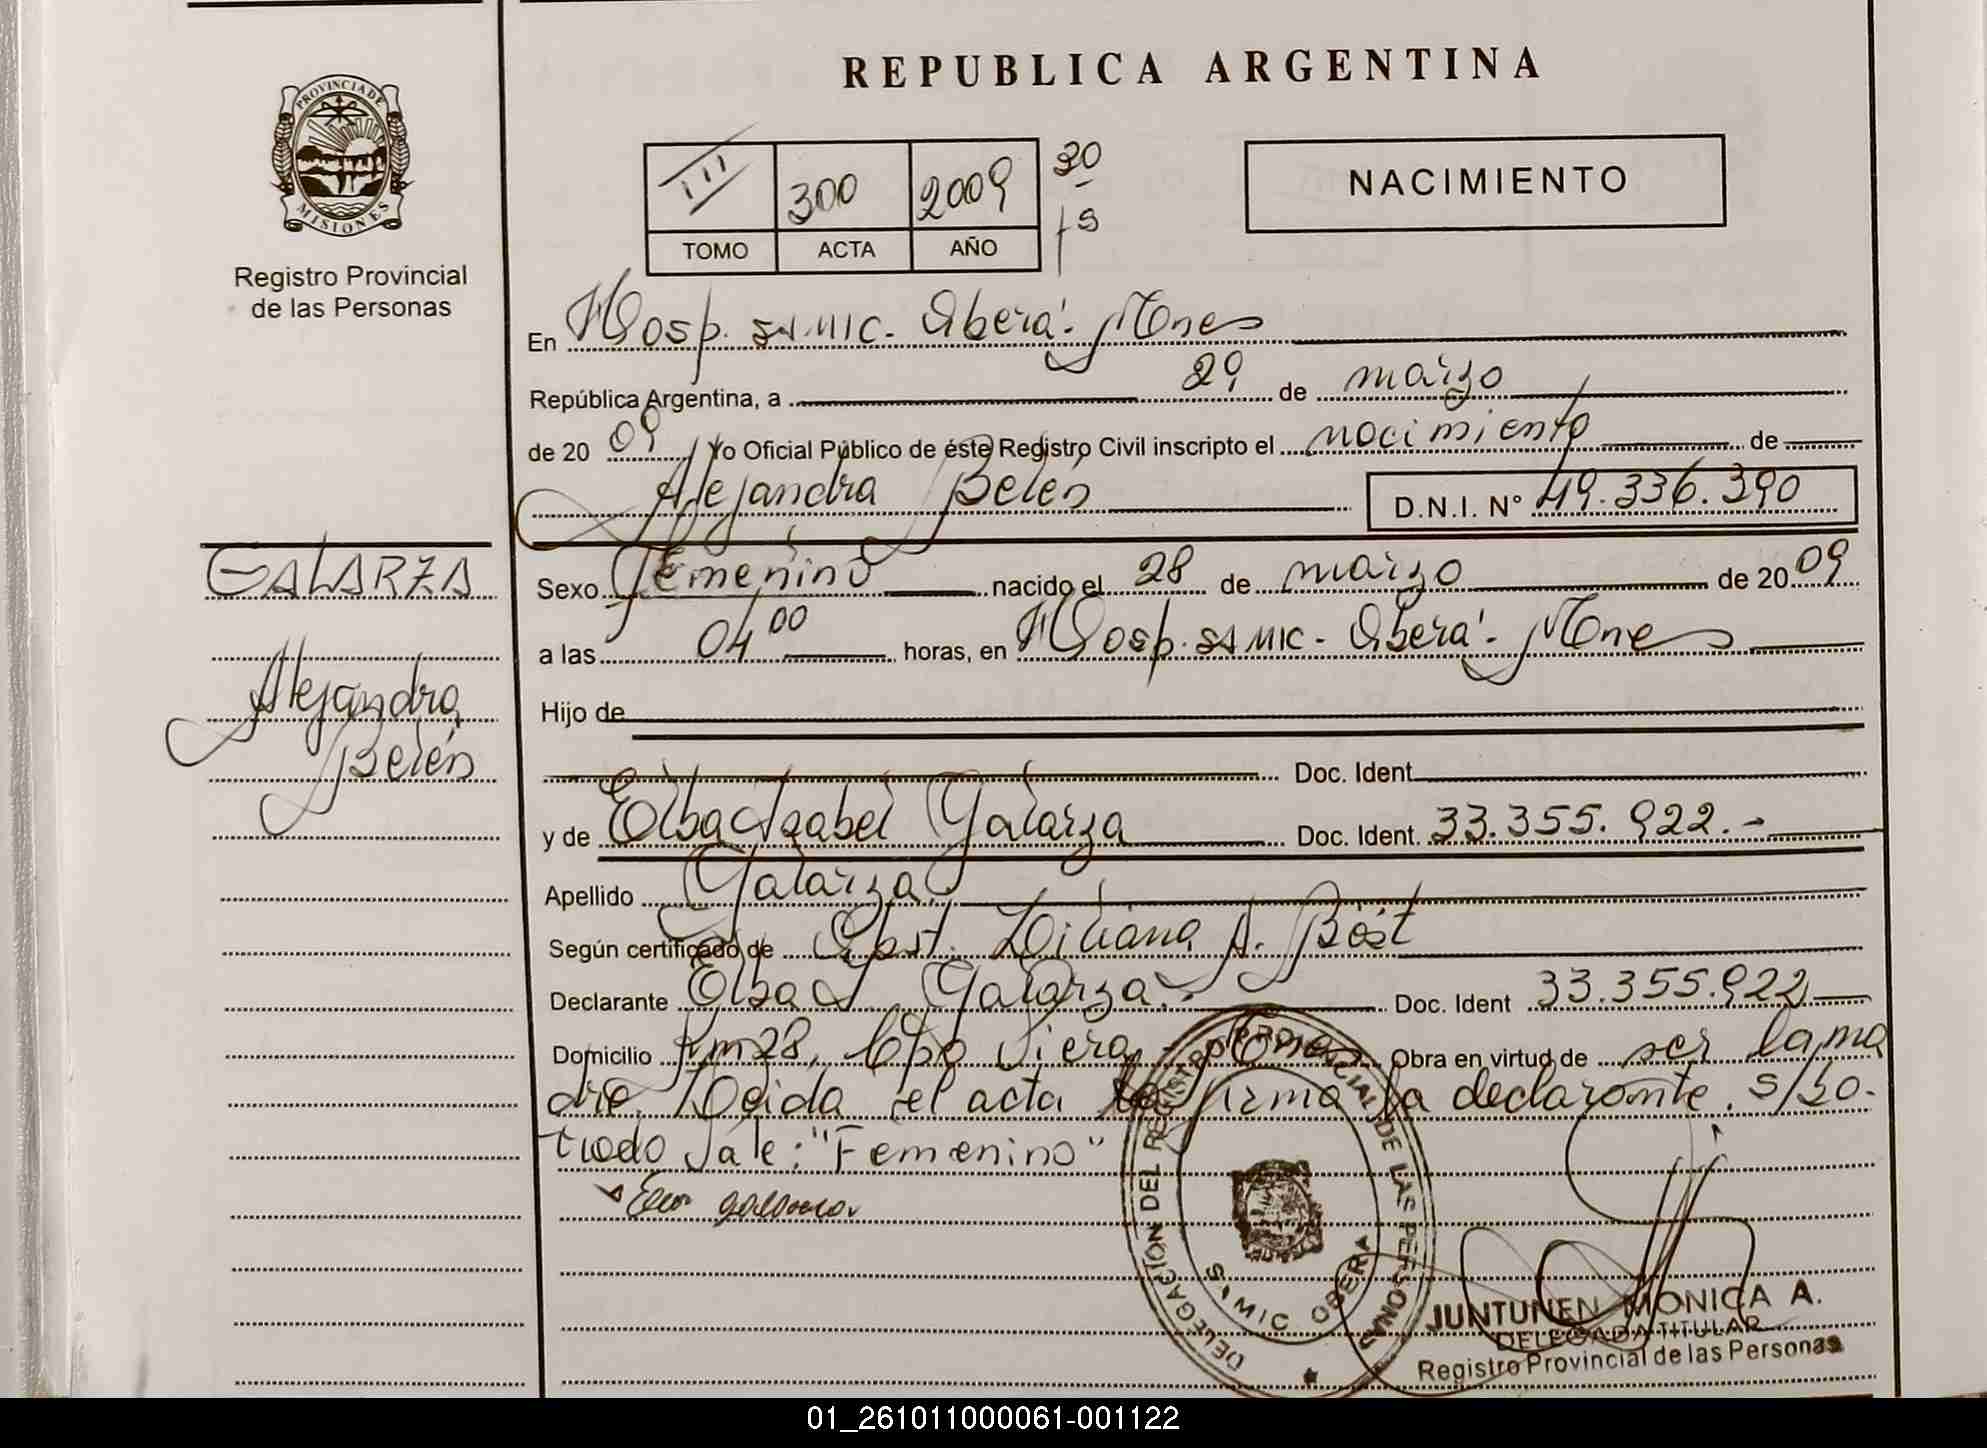 REPUBLICA ARGENTINA
PROVINCIA DE MISIONES
Registro Provincial
de las Personas
III 300 2009 30
TOMO ACTA AÑO
NACIMIENTO
En Hosp. SAMIC - Oberá - Mnes
República Argentina, a 29 de marzo
de 20 09 Yo Oficial Público de éste Registro Civil inscripto el nacimiento de
Alejandra Belén D.N.I. N° 49.336.390
GALARZA
Alejandra
Belén
Sexo Femenino nacido el 28 de marzo de 20 09
a las 04 00 horas, en Hosp. SAMIC - Oberá - Mnes
Hijo de
Doc. Ident.
y de Elba Isabel Galarza Doc. Ident. 33.355.922.-
Apellido Galarza
Según certificado de Obst. Liliana A. Böst
Declarante Elba I. Galarza.- Doc. Ident 33.355.922
Domicilio Km 28, Cpo Viera - Mnes Obra en virtud de ser la ma
dre. Leida el acta la firma la declarante. s/bo-
rrado Vale: "Femenino"
DELEGACIÓN DEL REGISTRO PROVINCIAL DE LAS PERSONAS
SAMIC OBERA
JUNTUNEN MONICA A.
DELEGADA TITULAR
Registro Provincial de las Personas
01_261011000061-001122